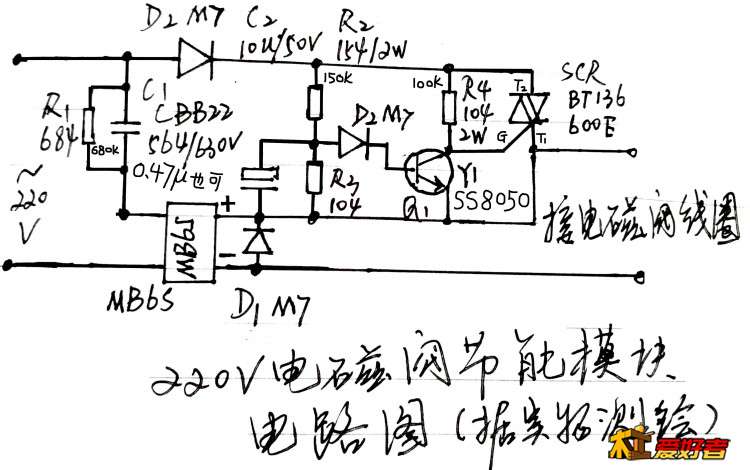 D2 M7
C2
10μ/50V
R2
154/2W
150k
100k
R4
104
2W
T2
SCR
BT136
600E
G
T1
R1
684
680k
C1
CBB22
564/630V
0.47μ也可
D2 M7
R3
104
Y1
SS8050
Q1
~
220
V
+
-
MB6S
MB6S
D1 M7
接电磁阀线圈
220V电磁阀节能模块
电路图(据实物测绘)
爱好者